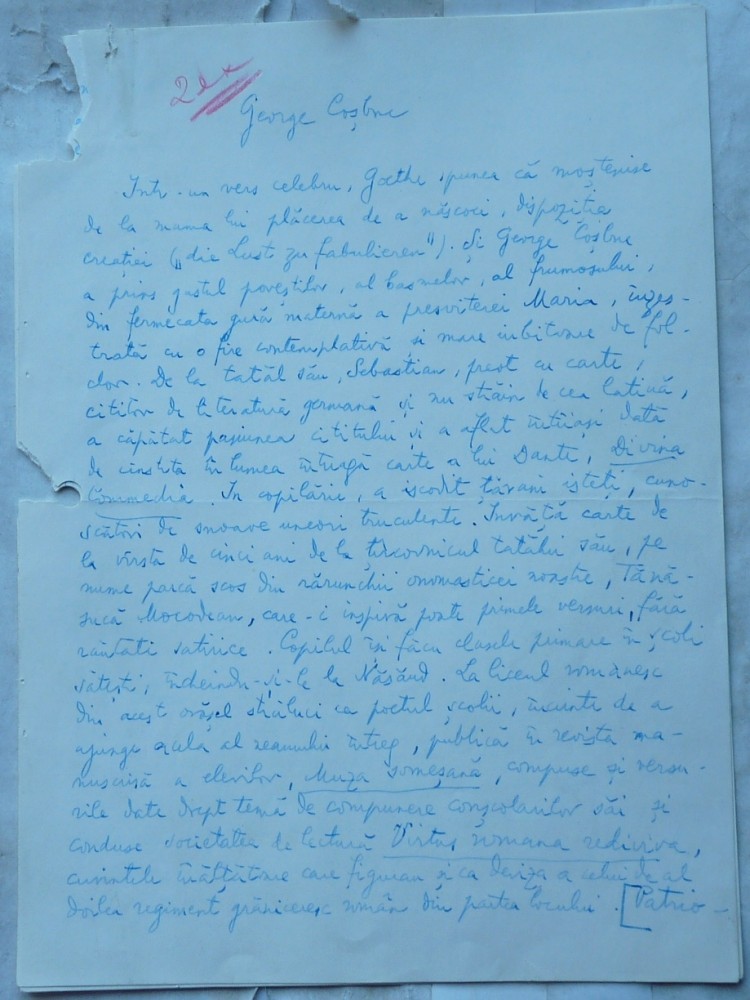 2 ex
George Coșbuc
Într-un vers celebru, Goethe spunea că moștenise
de la mama lui plăcerea de a născoci, dispoziția
creației („die Lust zu fabulieren"). Și George Coșbuc
a prins gustul poveștilor, al basmelor, al frumosului,
din fermecata gură maternă a presviterei Maria, înzes-
trată cu o fire contemplativă și mare iubitoare de fol-
clor. De la tatăl său, Sebastian, preot cu carte,
cititor de literatură germană și nu străin de cea latină,
a căpătat pasiunea cititului și a aflat întîiași dată
de cinstita în lumea întreagă carte a lui Dante, Divina
Commedia. În copilărie, a iscodit țărani isteți, cuno-
scători de snoave uneori truculente. Învăță carte de
la vîrsta de cinci ani de la țîrcovnicul tatălui său, pe
nume parcă scos din rărunchii onomasticei noastre, Tănă-
sucă Mocodean, care-i inspiră poate primele versuri, fără
răutăți satirice. Copilul își făcu clasele primare în școli
sătești, încheindu-și-le la Năsăud. La liceul românesc
din acest orășel străluci ca poetul școlii, înainte de a
ajunge acela al neamului întreg, publică în revista ma-
nuscrisă a elevilor, Muza someșană, compuse și versu-
rile date drept temă de compunere conșcolarilor săi și
conduse societatea de lectură Virtus romana rediviva,
cuvintele înălțătoare care figurau și ca deviza a celui de al
doilea regiment grăniceresc român din partea locului. [Patrio-